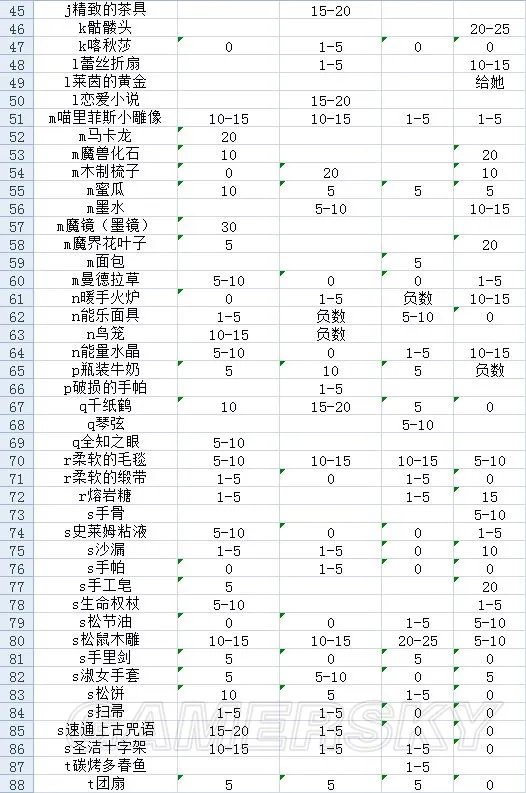 45 j精致的茶具 15-20
46 k骷髅头 20-25
47 k喀秋莎 0 1-5 0 0
48 l蕾丝折扇 1-5 10-15
49 l莱茵的黄金 给她
50 l恋爱小说 15-20
51 m喵里菲斯小雕像 10-15 10-15 1-5 1-5
52 m马卡龙 20
53 m魔兽化石 10 20
54 m木制梳子 0 20 10
55 m蜜瓜 10 5 5 5
56 m墨水 5-10 10-15
57 m魔镜（墨镜） 30
58 m魔界花叶子 5 20
59 m面包 5
60 m曼德拉草 5-10 0 0 1-5
61 n暖手火炉 0 1-5 负数 10-15
62 n能乐面具 1-5 负数 5-10 0
63 n鸟笼 10-15 负数
64 n能量水晶 5-10 0 1-5 10-15
65 p瓶装牛奶 5 10 5 负数
66 p破损的手帕 1-5
67 q千纸鹤 10 15-20 5 0
68 q琴弦 5-10
69 q全知之眼 5-10
70 r柔软的毛毯 5-10 10-15 10-15 5-10
71 r柔软的缎带 1-5 0 1-5 0
72 r熔岩糖 1-5 1-5 15
73 s手骨 5-10
74 s史莱姆粘液 5-10 0 0 1-5
75 s沙漏 1-5 1-5 0 10
76 s手帕 0 1-5 0 0
77 s手工皂 5 20
78 s生命权杖 5-10 1-5
79 s松节油 0 0 1-5 5-10
80 s松鼠木雕 10-15 10-15 20-25 5-10
81 s手里剑 5 0 5 0
82 s淑女手套 5 5-10 0 5
83 s松饼 10 5 1-5 0
84 s扫帚 1-5 1-5 0 0
85 s速通上古咒语 15-20 1-5 0 0
86 s圣洁十字架 10-15 1-5 1-5 0
87 t碳烤多春鱼 1-5
88 t团扇 5 5 5 0
GAMERSKY